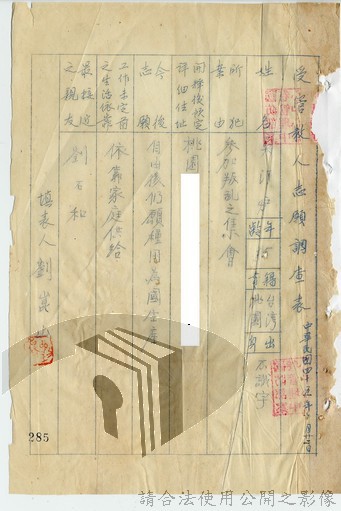 受管教人志願調查表
中華民國四十
姓名
年齡
籍貫
台灣
桃園
出
不識字
所犯
案由
參加叛亂之集會
開釋後決定
詳細住址
桃園
今後
志願
自由後仍願種田為國生產
工作未定前
之生活依靠
依靠家庭供給
最接近
之親友
劉石松
填表人 劉
285
請合法使用公開之影像